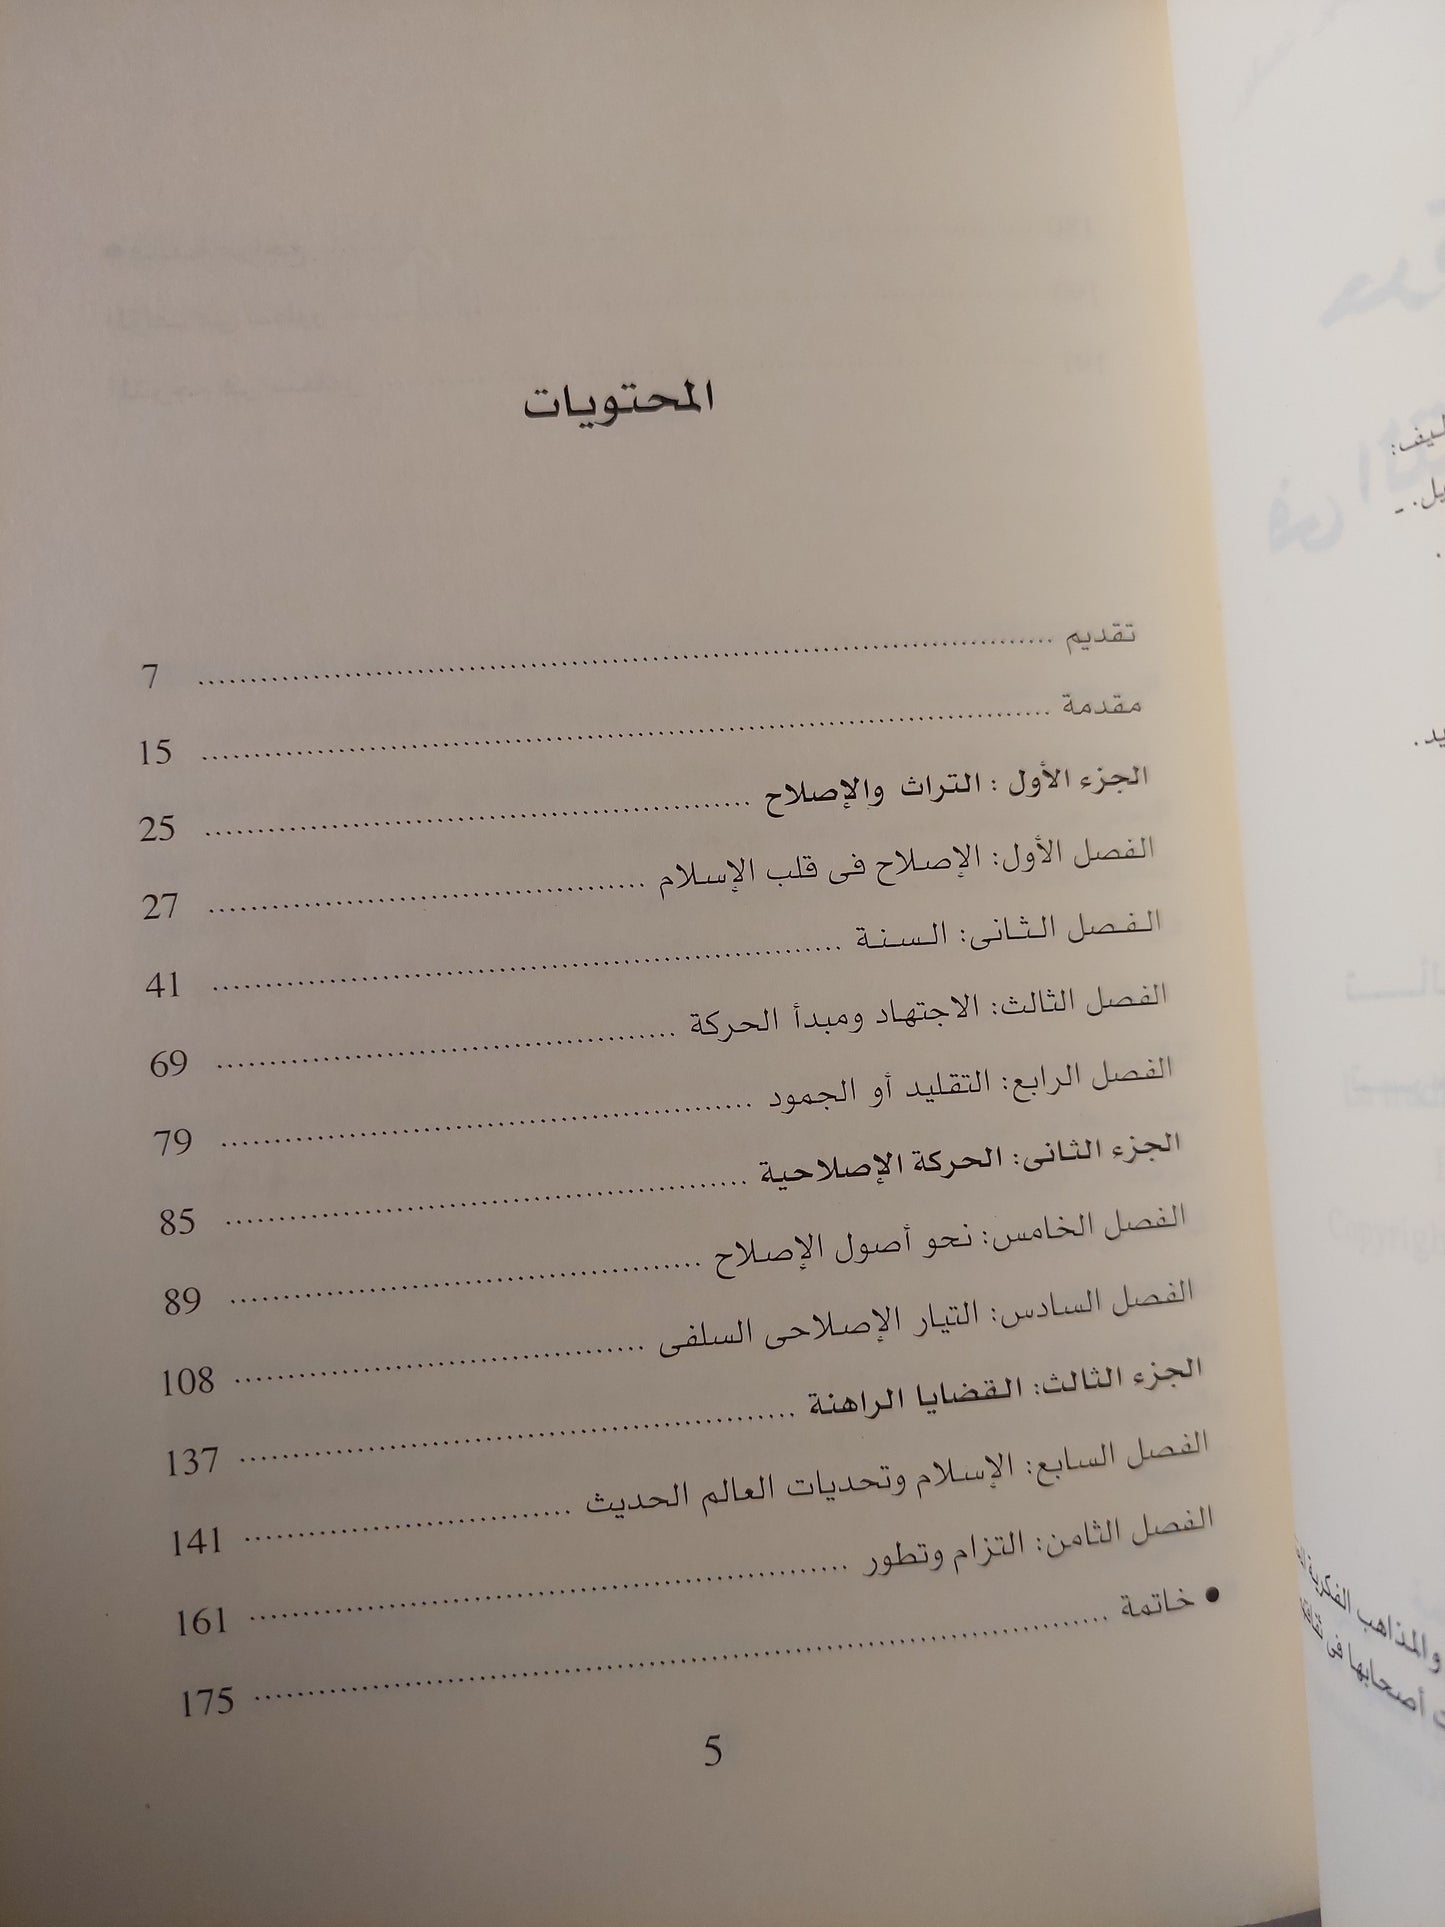 المحتويات
تقديم ........ 7
مقدمة ........ 15
الجزء الأول : التراث والإصلاح ........ 25
الفصل الأول: الإصلاح فى قلب الإسلام ........ 27
الفصل الثانى: السنة ........ 41
الفصل الثالث: الاجتهاد ومبدأ الحركة ........ 69
الفصل الرابع: التقليد أو الجمود ........ 79
الجزء الثانى: الحركة الإصلاحية ........ 85
الفصل الخامس: نحو أصول الإصلاح ........ 89
الفصل السادس: التيار الإصلاحى السلفى ........ 108
الجزء الثالث: القضايا الراهنة ........ 137
الفصل السابع: الإسلام وتحديات العالم الحديث ........ 141
الفصل الثامن: التزام وتطور ........ 161
• خاتمة ........ 175
5
والمذاهب الفكرية
أصحابها فى